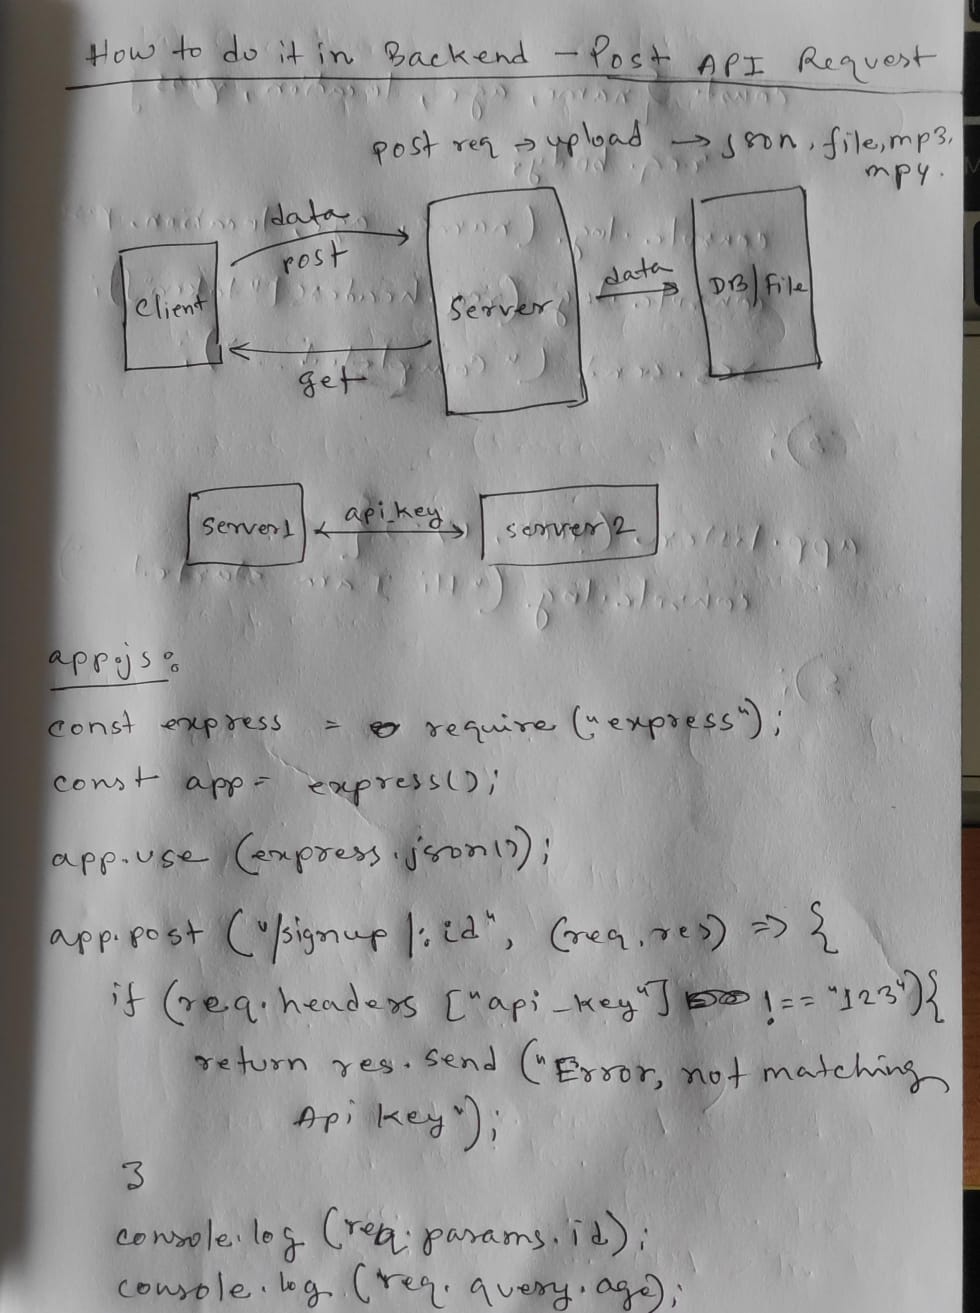 How to do it in Backend - Post API Request
post req → upload → json, file, mp3,
mp4.
data
post
client
server
data
DB/File
get
server1
api_key
server2
app.js:
const express = require ("express");
const app = express();
app.use (express.json());
app.post ("/signup/:id", (req, res) => {
if (req.headers ["api_key"] !== "123"){
return res.send ("Error, not matching
Api key");
}
console.log (req.params.id);
console.log (req.query.age);